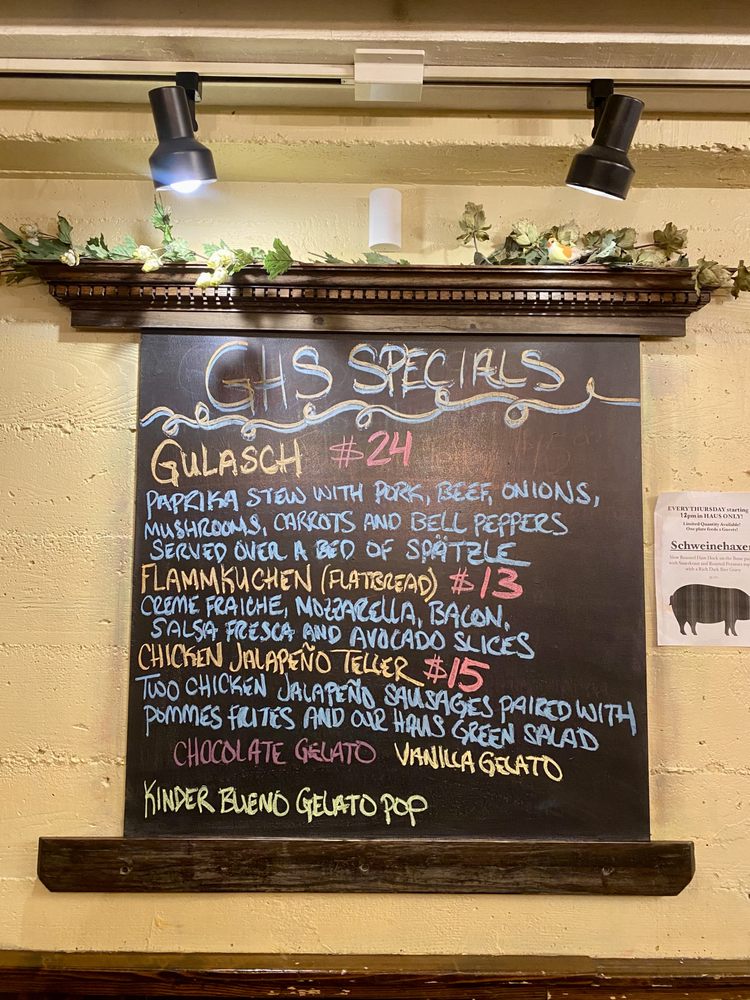 GHS SPECIALS
GULASCH $24
PAPRIKA STEW WITH PORK, BEEF, ONIONS,
MUSHROOMS, CARROTS AND BELL PEPPERS
SERVED OVER A BED OF SPÄTZLE
FLAMMKUCHEN (FLATBREAD) $13
CRÉME FRAICHE, MOZZARELLA, BACON,
SALSA FRESCA AND AVOCADO SLICES
CHICKEN JALAPEÑO TELLER $15
TWO CHICKEN JALAPEÑO SAUSAGES PAIRED WITH
POMMES FRITES AND OUR HAUS GREEN SALAD
CHOCOLATE GELATO VANILLA GELATO
KINDER BUENO GELATO POP
EVERY THURSDAY starting
12pm in HAUS ONLY!
Limited Quantity Available!
One plate feeds 2 Guests!
Schweinehaxen
with Sauerkraut and Roasted Potatoes
with a Rich Dark Beer Gravy